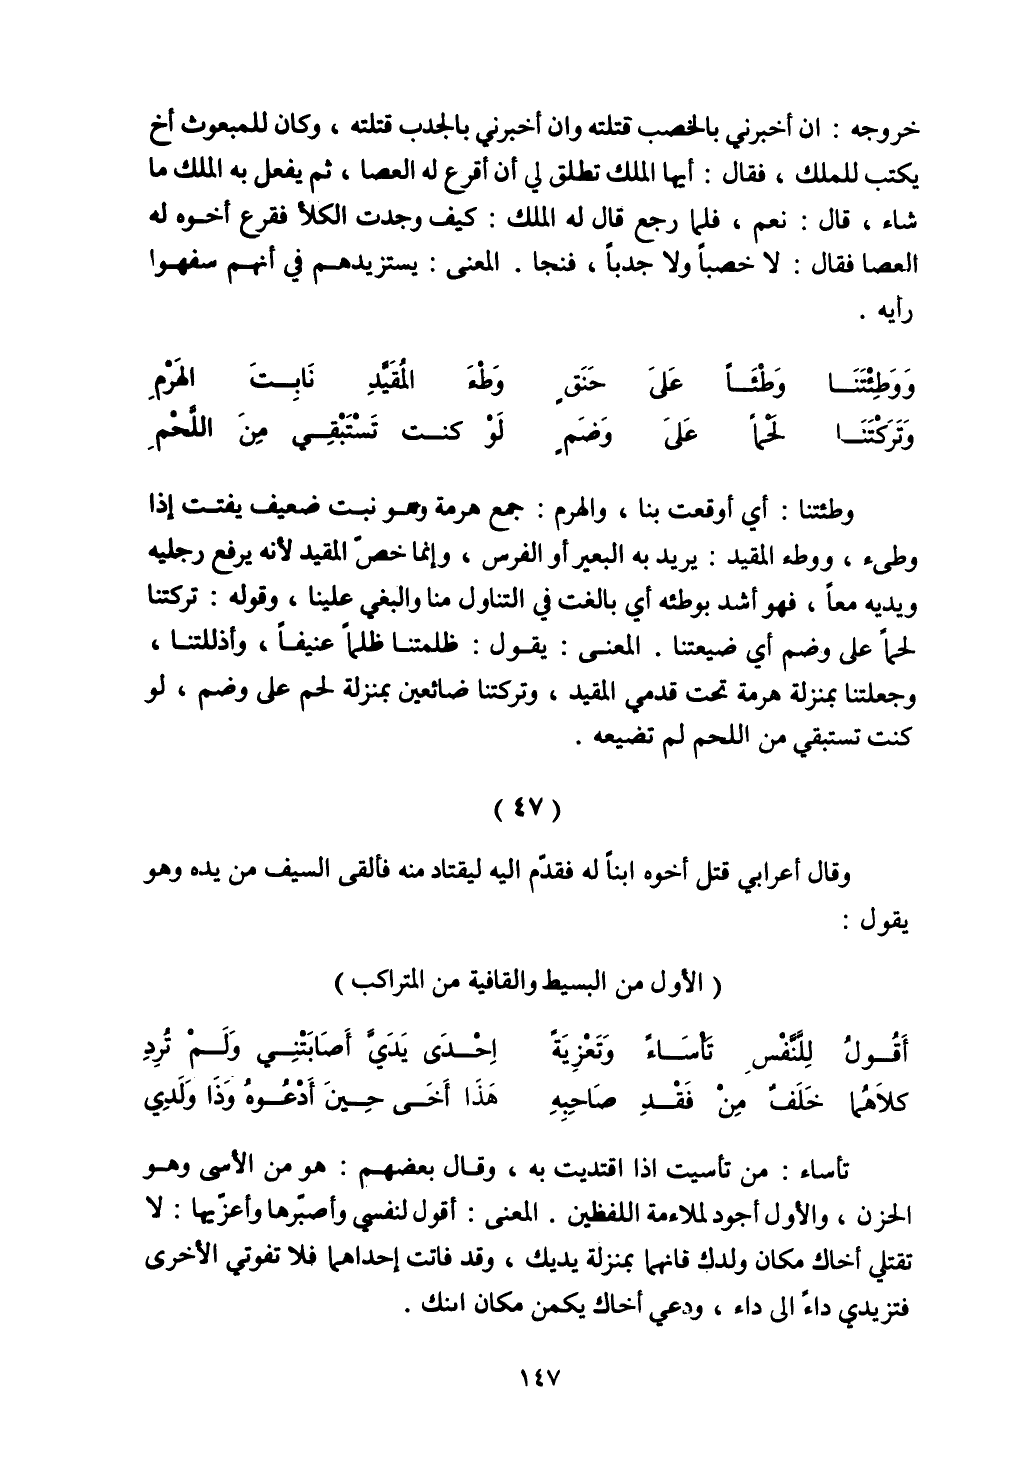 خروجه : ان أخبرني بالخصب قتلته وان أخبرني بالجدب قتلته ، وكان للمبعوث أخ
يكتب للملك ، فقال : أيها الملك تطلق لي أن أقرع له العصا ، ثم يفعل به الملك ما
شاء ، قال : نعم ، فلما رجع قال له الملك : كيف وجدت الكلأ فقرع أخوه له
العصا فقال : لا خصباً ولا جدباً ، فنجا . المعنى : يستزيدهم في أنهم سفهوا
رأيه .
وَوَطِئْتَنَا وَطْئَاً عَلَىَ حَنَقٍ وَطْءَ المُقَيَّدِ نَابِتَ الهَرْمِ
وَتَرَكْتَنَا لَحْماً عَلَىَ وَضَمٍ لَوْ كنت تَسْتَبْقِي مِنَ اللَّحْمِ
وطئتنا : أي أوقعت بنا ، والهرم : جمع هرمة وهو نبت ضعيف يفتت إذا
وطىء ، ووطء المقيد : يريد به البعير أو الفرس ، وإنما خصّ المقيد لأنه يرفع رجليه
ويديه معاً ، فهو أشد بوطئه أي بالغت في التناول منا والبغي علينا ، وقوله : تركتنا
لحماً على وضم أي ضيعتنا . المعنى : يقول : ظلمتنا ظلماً عنيفاً ، وأذللتنا ،
وجعلتنا بمنزلة هرمة تحت قدمي المقيد ، وتركتنا ضائعين بمنزلة لحم على وضم ، لو
كنت تستبقي من اللحم لم تضيعه .
( ٤٧ )
وقال أعرابي قتل أخوه ابناً له فقدّم اليه ليقتاد منه فألقى السيف من يده وهو
يقول :
( الأول من البسيط والقافية من المتراكب )
أَقُولُ لِلنَّفْسِ تَأْسَاءً وَتَعْزِيَةً اِحْدَى يَدَيَّ أَصَابَتْنِي وَلَمْ تُرِدِ
كلاَهُما خَلَفٌ مِنْ فَقْدِ صَاحِبِهِ هَذَا أَخَي حِينَ أَدْعُوهُ وَذَا وَلَدِي
تأساء : من تأسيت اذا اقتديت به ، وقال بعضهم : هو من الأسى وهو
الحزن ، والأول أجود لملاءمة اللفظين . المعنى : أقول لنفسي وأصبّرها وأعزّيها : لا
تقتلي أخاك مكان ولدك فانهما بمنزلة يديك ، وقد فاتت إحداهما فلا تفوتي الأخرى
فتزيدي داءً الى داء ، ودعي أخاك يكمن مكان ابنك .
١٤٧